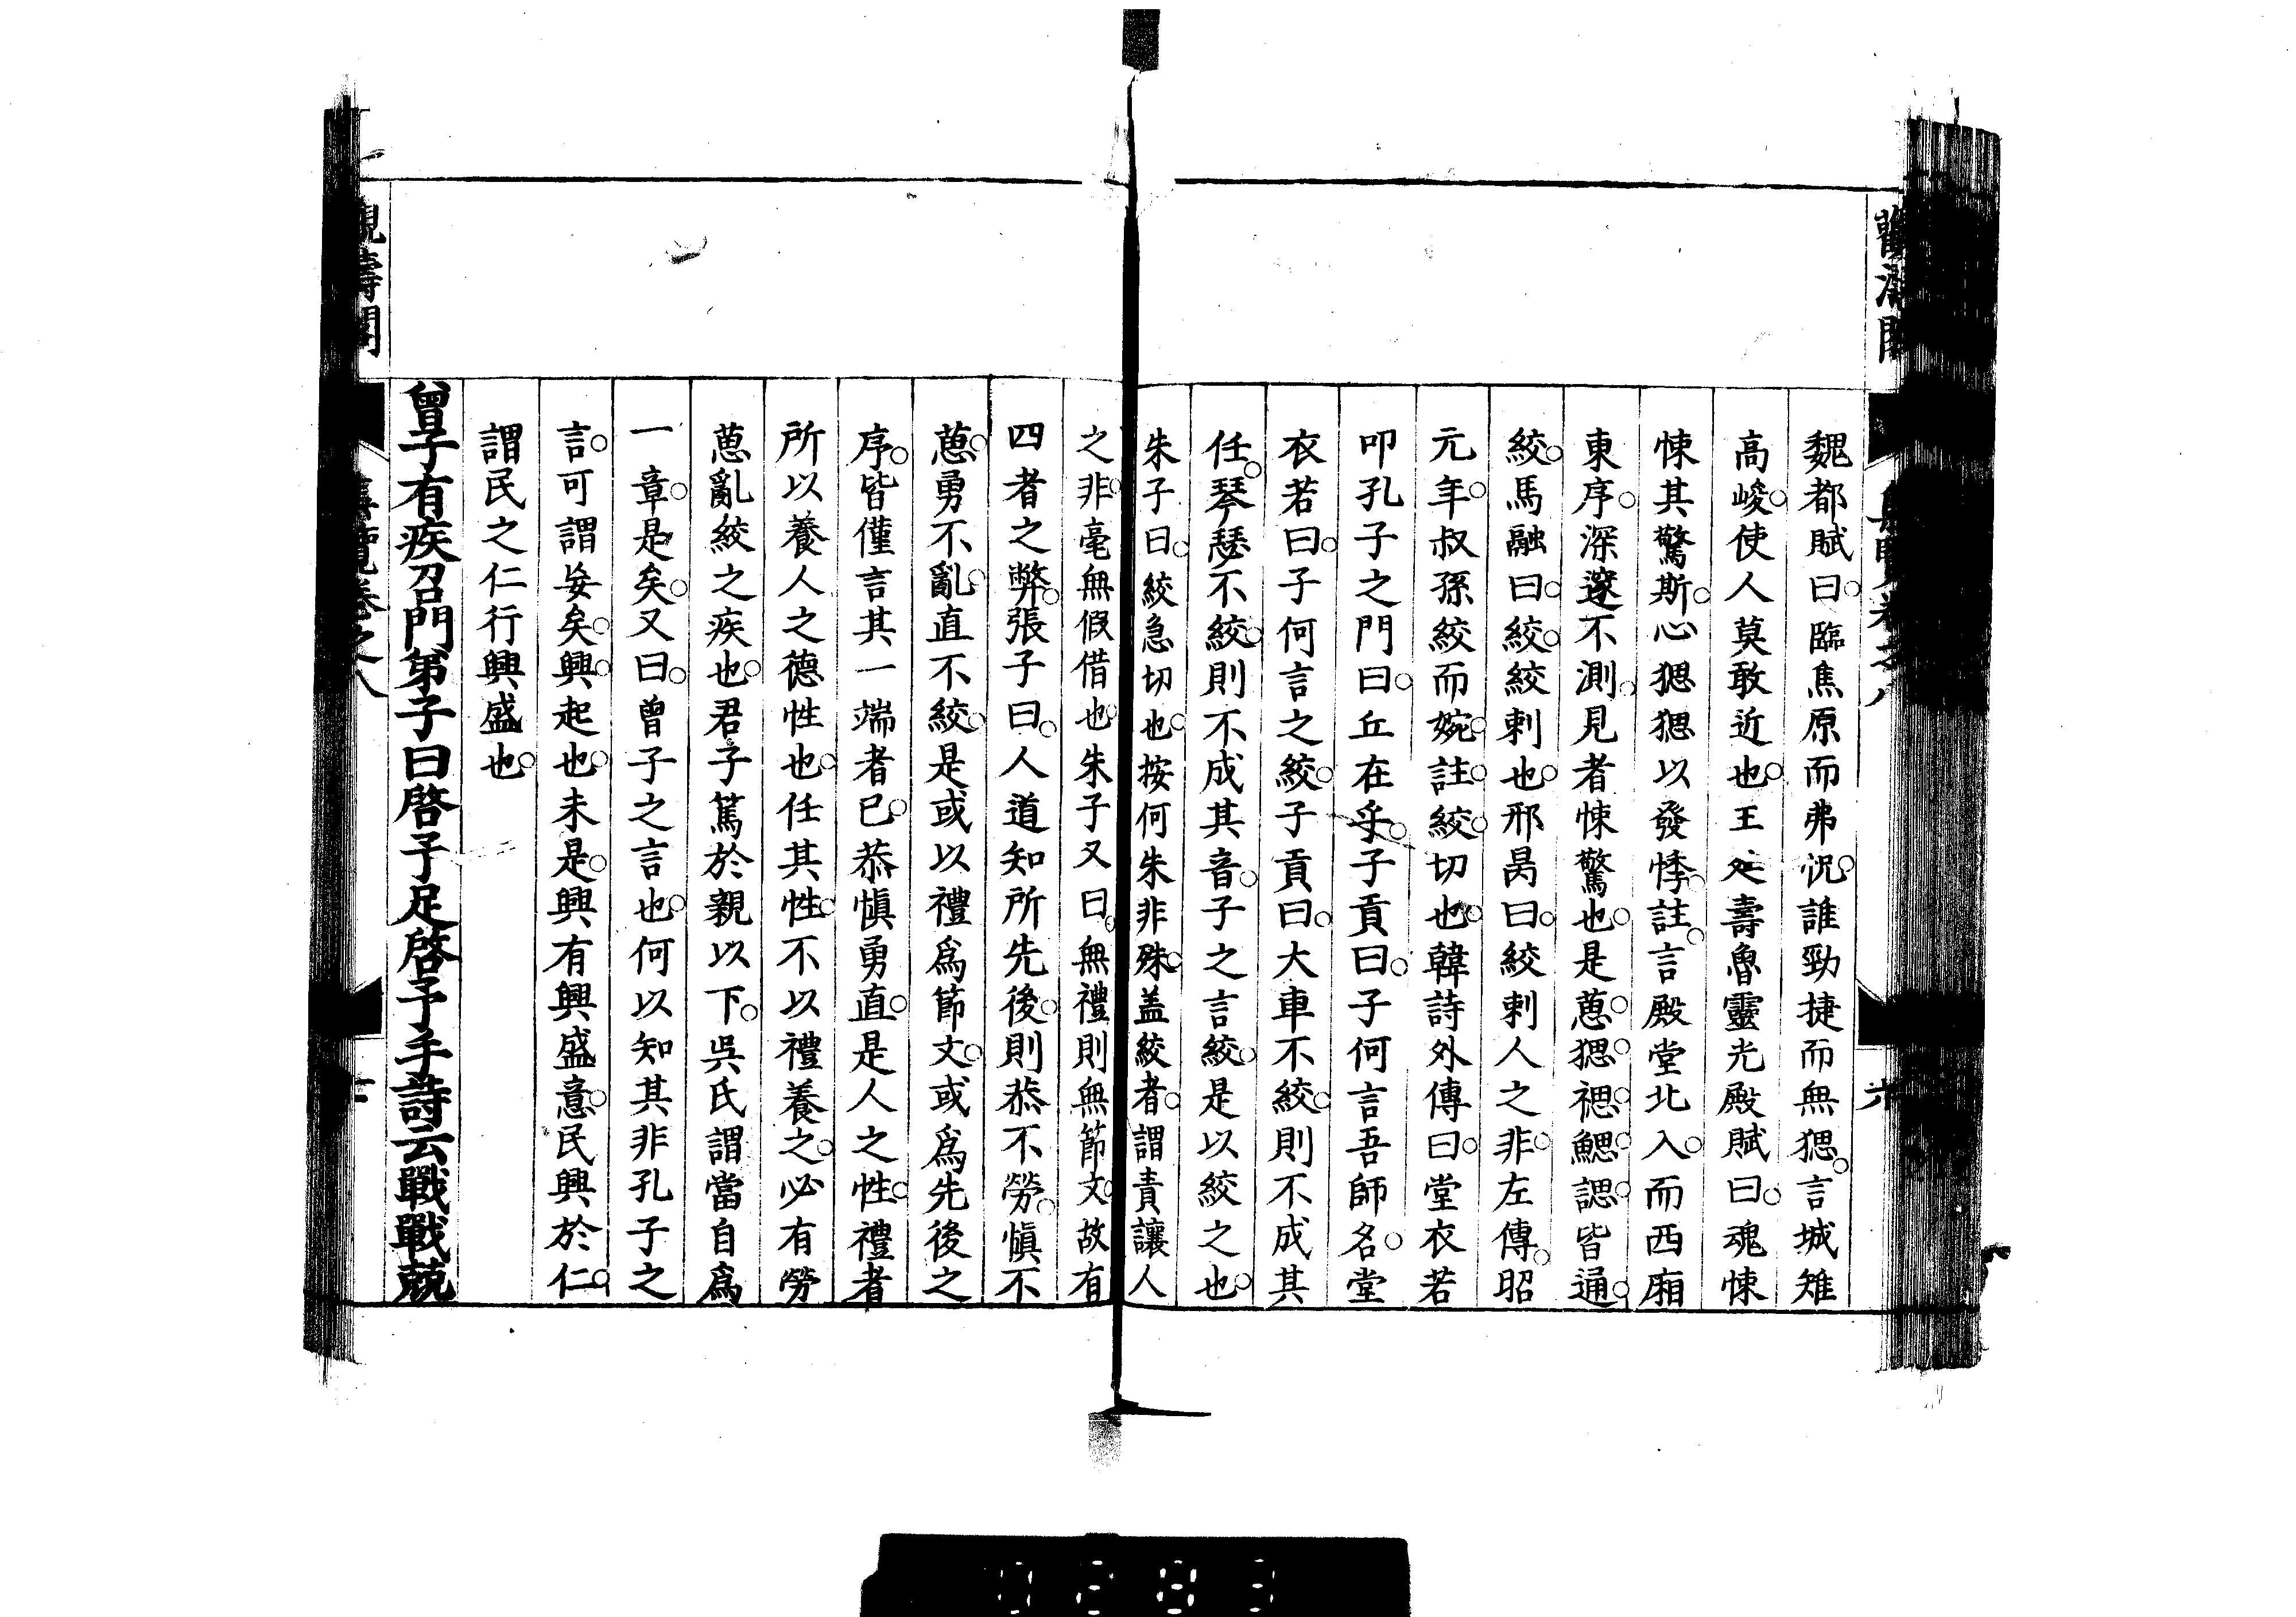 魏都賦曰臨焦原而弗怳誰勁捷而無猲言城雉
高峻使人莫敢近也王延壽魯靈光殿賦曰魂悚
悚其驚斯心猲猲以發悸註言殿堂北入而西廂
東序深邃不測見者悚驚也是葸猲禗鰓諰皆通
絞馬融曰絞絞剌也邢昺曰絞剌人之非左傳昭
元年叔孫絞而婉註絞切也韓詩外傳曰堂衣若
叩孔子之門曰丘在乎子貢曰子何言吾師名堂
衣若曰子何言之絞子貢曰大車不絞則不成其
任琴瑟不絞則不成其音子之言絞是以絞之也
朱子曰絞急切也按何朱非殊盖絞者謂責讓人
之非毫無假借也朱子又曰無禮則無節文故有
四者之弊張子曰人道知所先後則恭不勞愼不
葸勇不亂直不絞是或以禮爲節文或爲先後之
序皆僅言其一端者已恭愼勇直是人之性禮者
所以養人之德性也任其性不以禮養之必有勞
葸亂絞之疾也君子篤於親以下吳氏謂當自爲
一章是矣又曰曾子之言也何以知其非孔子之
言可謂妄矣興起也未是興有興盛意民興於仁
謂民之仁行興盛也
曾子有疾召門弟子曰啓予足啓予手詩云戰戰兢